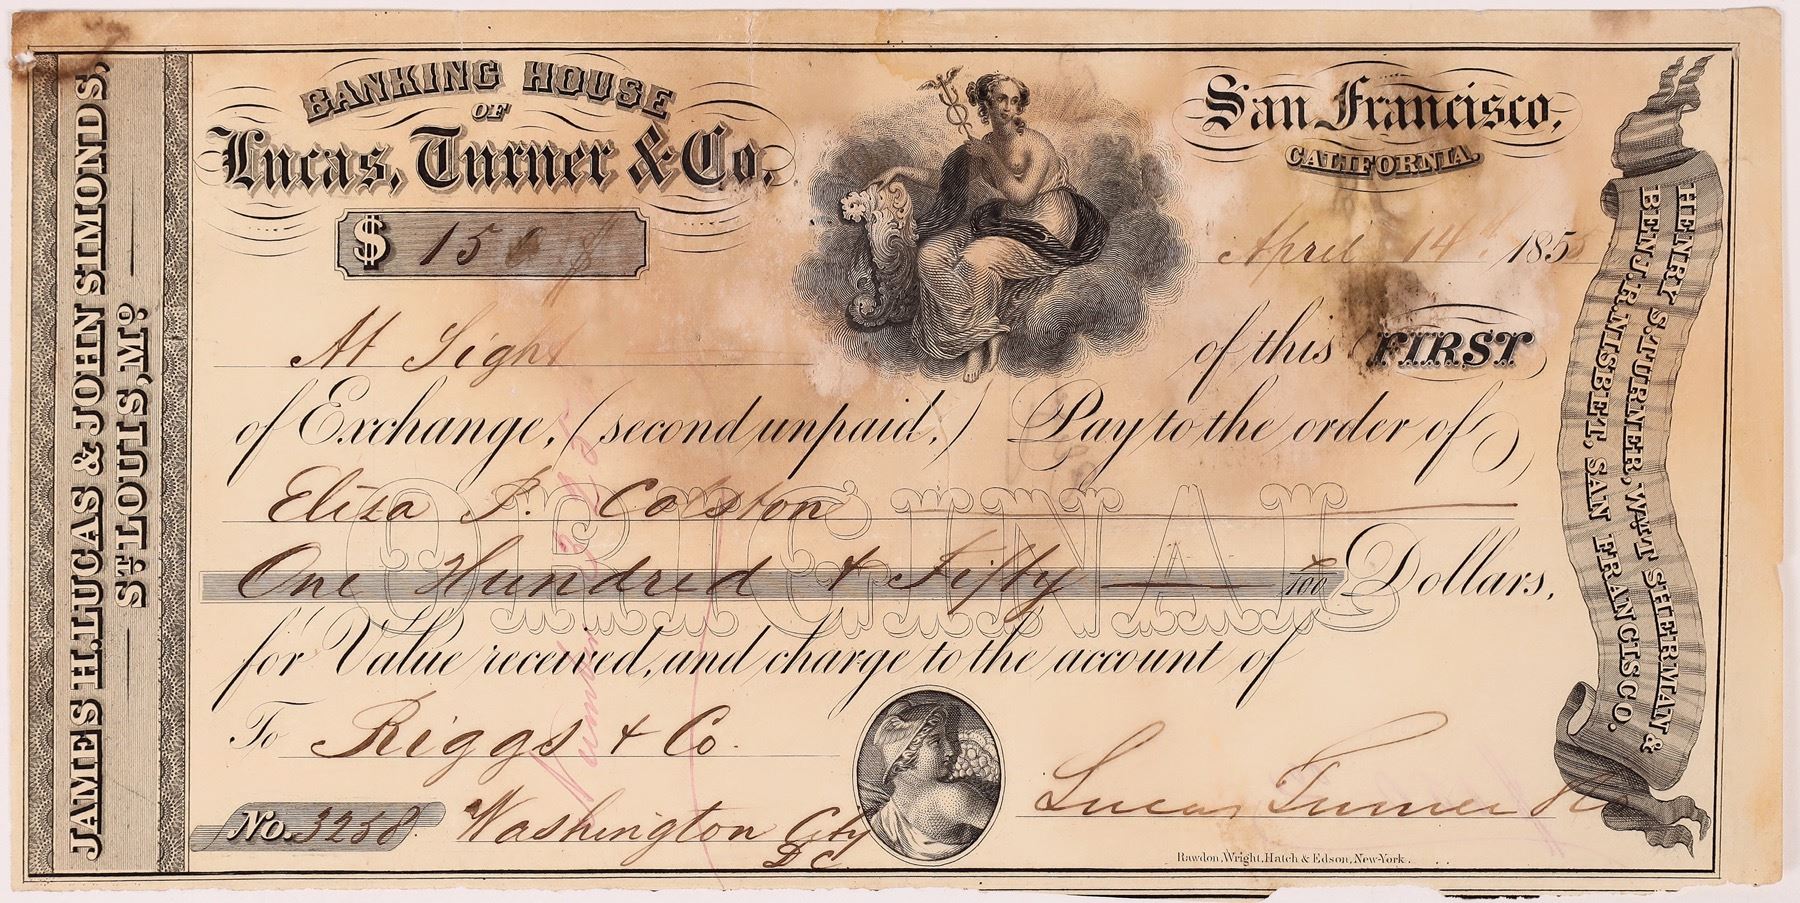 JAMES H. LUCAS & JOHN SIMONDS,
ST. LOUIS, MO.
BANKING HOUSE
OF
Lucas, Turner & Co.
San Francisco,
CALIFORNIA.
$ 150 $
April 14th 185
At Sight of this FIRST
of Exchange, (second unpaid,) Pay to the order of
Eliza P. Colston
ORIGINAL
One Hundred & Fifty /100 Dollars,
for Value received, and charge to the account of
To Riggs & Co.
Lucas Turner & Co
No. 3258 Washington City
DC
Number
Rawdon, Wright, Hatch & Edson, New-York.
HENRY S. TURNER, WM. T. SHERMAN &
BENJ. R. NISBET, SAN FRANCISCO.